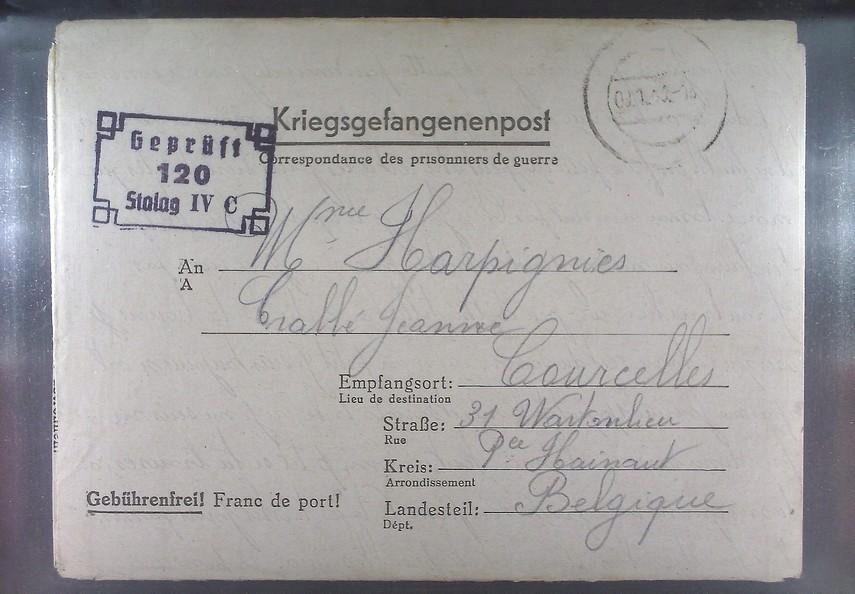 Kriegsgefangenenpost
Correspondance des prisonniers de guerre
Geprüft
120
Stalag IV C
An Mme Harpignies
A
Crabbé Jeanne
Empfangsort: Courcelles
Lieu de destination
Straße: 31
Rue
Kreis: Pce Hainaut
Arrondissement
Gebührenfrei! Franc de port!
Landesteil: Belgique
Dépt.